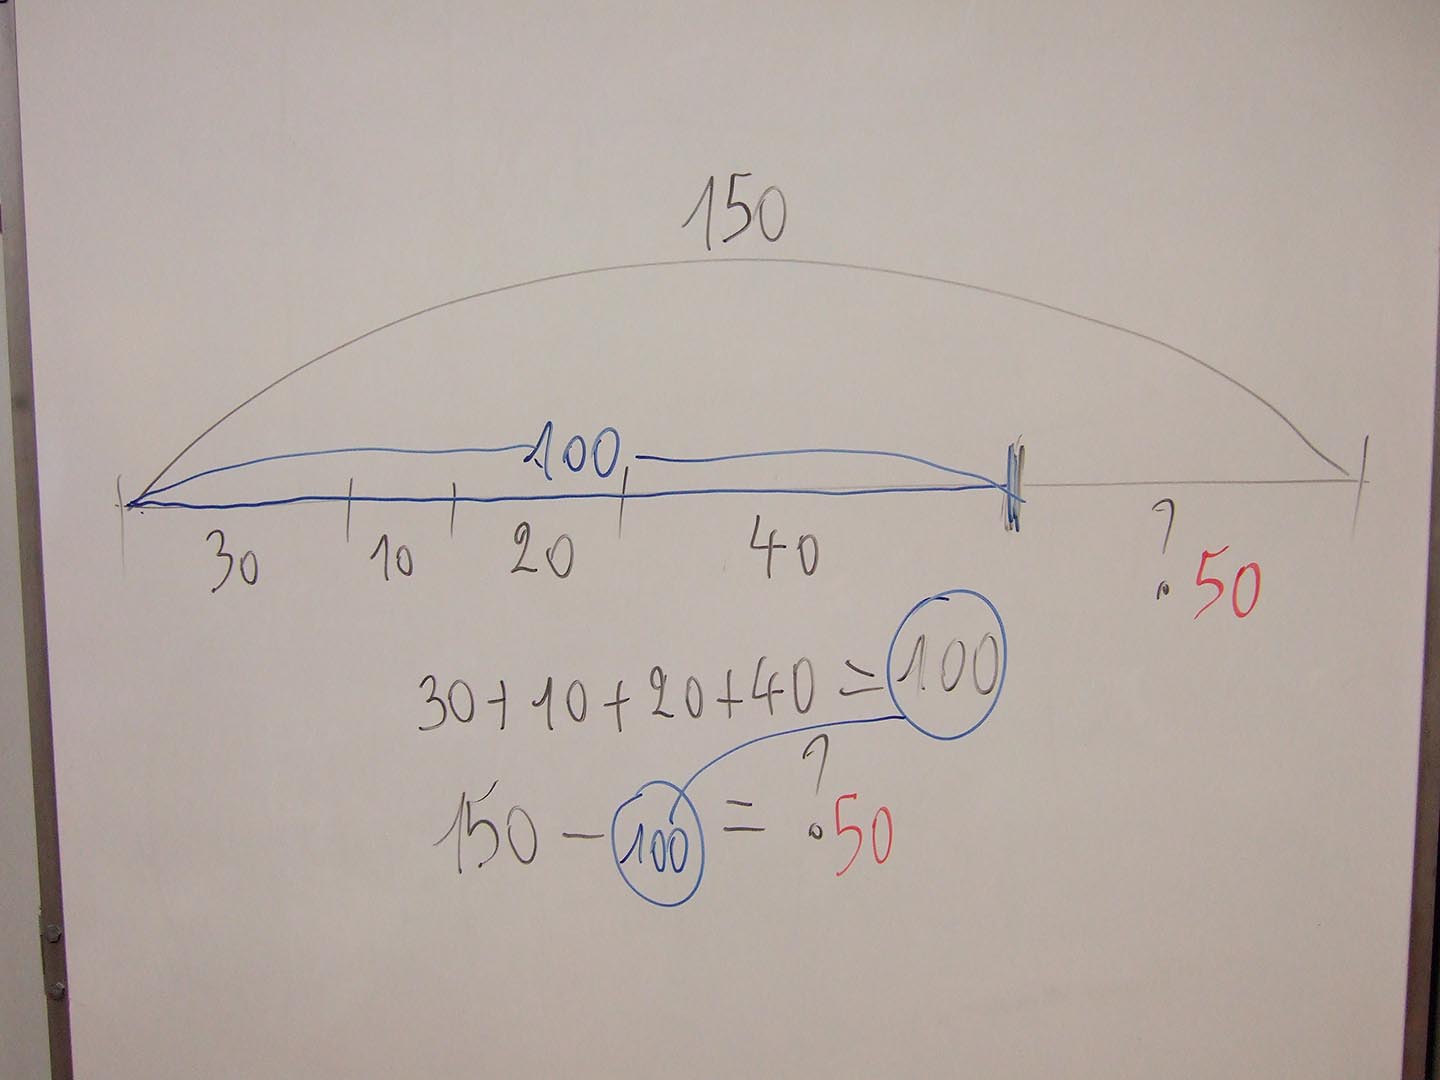 150
100
30 10 20 40 ? 50
30+10+20+40 = 100
150 - 100 = ? 50